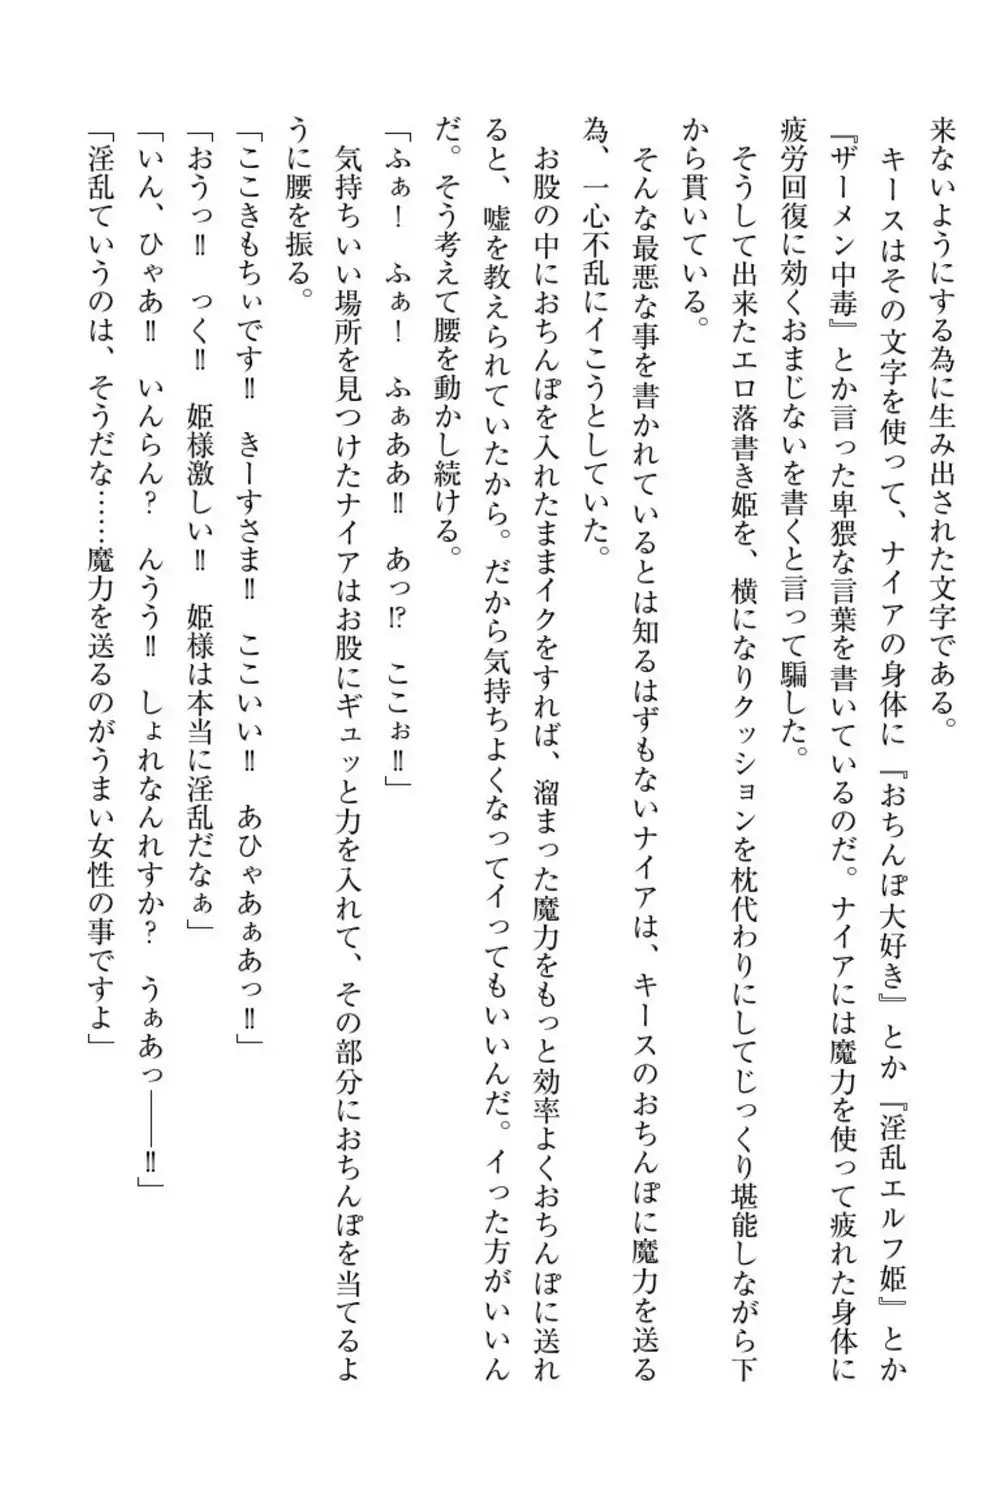 来ないようにする為に生み出された文字である。
　キースはその文字を使って、ナイアの身体に『おちんぽ大好き』とか『淫乱エルフ姫』とか
『ザーメン中毒』とか言った卑猥な言葉を書いているのだ。ナイアには魔力を使って疲れた身体に
疲労回復に効くおまじないを書くと言って騙した。
　そうして出来たエロ落書き姫を、横になりクッションを枕代わりにしてじっくり堪能しながら下
から貫いている。
　そんな最悪な事を書かれているとは知るはずもないナイアは、キースのおちんぽに魔力を送る
為、一心不乱にイこうとしていた。
　お股の中におちんぽを入れたままイクをすれば、溜まった魔力をもっと効率よくおちんぽに送れ
ると、嘘を教えられていたから。だから気持ちよくなってイってもいいんだ。イった方がいいん
だ。そう考えて腰を動かし続ける。
「ふぁ！　ふぁ！　ふぁああ‼　あっ⁉　ここぉ‼」
　気持ちいい場所を見つけたナイアはお股にギュッと力を入れて、その部分におちんぽを当てるよ
うに腰を振る。
「ここきもちぃです‼　きーすさま‼　ここいい‼　あひゃあぁあっ‼」
「おうっ‼　っく‼　姫様激しい‼　姫様は本当に淫乱だなぁ」
「いん、ひゃあ‼　いんらん？　んうう‼　しょれなんれすか？　うぁあっ――‼」
「淫乱ていうのは、そうだな……魔力を送るのがうまい女性の事ですよ」